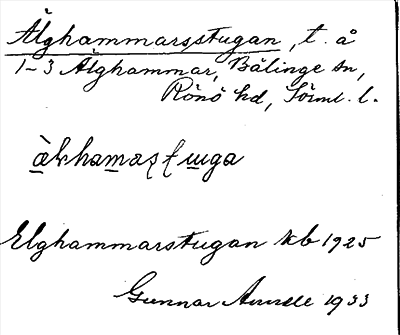 Älghammarsstugan, t. å
1-3 Älghammar, Bälinge sn,
Rönö hd, Söml. l.
Elghammarstugan kb 1925
Gunnar 1933